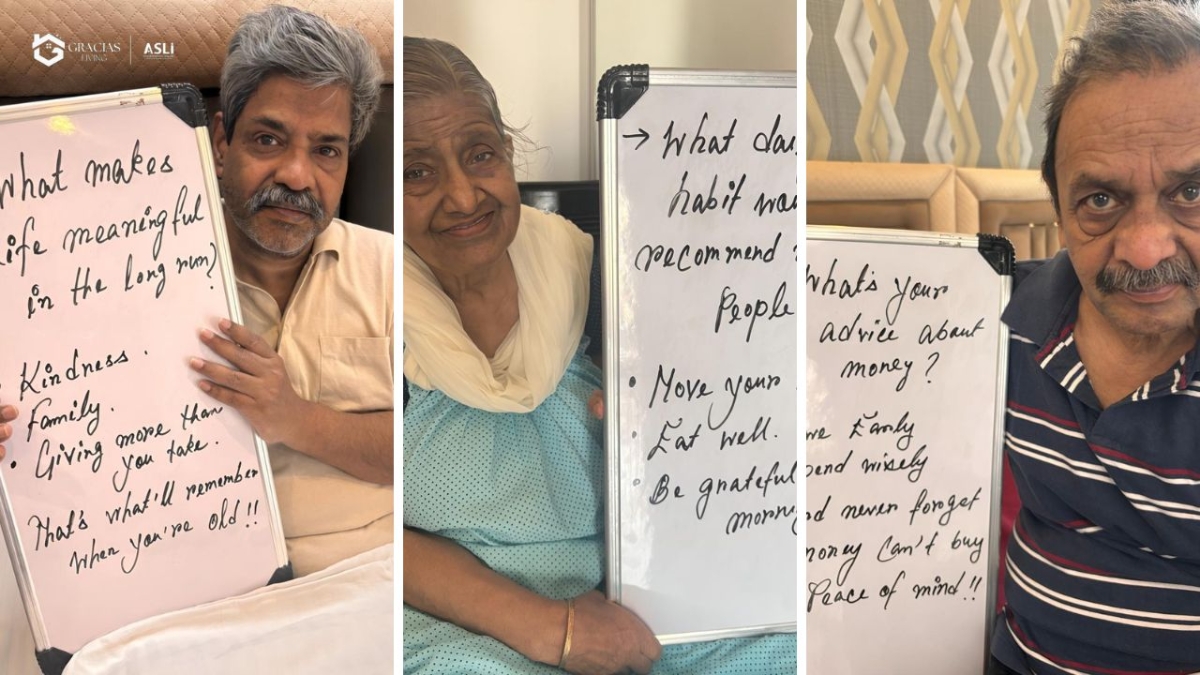 GRACIAS
LIVING
ASLi
What makes
life meaningful
in the long run?
• Kindness.
Family.
• Giving more than
you take.
That's what'll remember
when you're old!!
→ What
habit
recommend
People
• Move your
• Eat well.
• Be grateful
What's your
advice about
money?
Early
wisely
never forget
money can't buy
Peace of mind!!